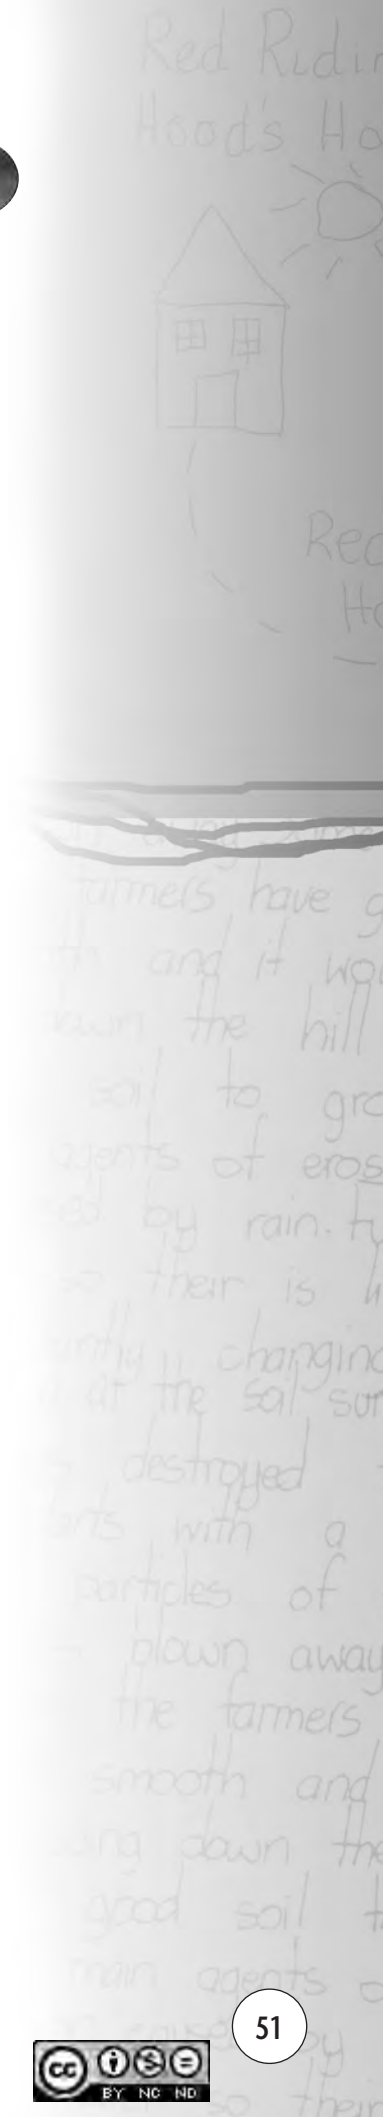 Red Ridin
Hood's Ho
Red
Ho
farmers have g
and it wou
down the hill
soil to gro
agents of eros
by rain. ty
their is li
changing
at the soil sur
destroyed
with a
particles of
blown away
the farmers
smooth and
down the
good soil t
main agents o
51
by
so their
cc
BY NC ND